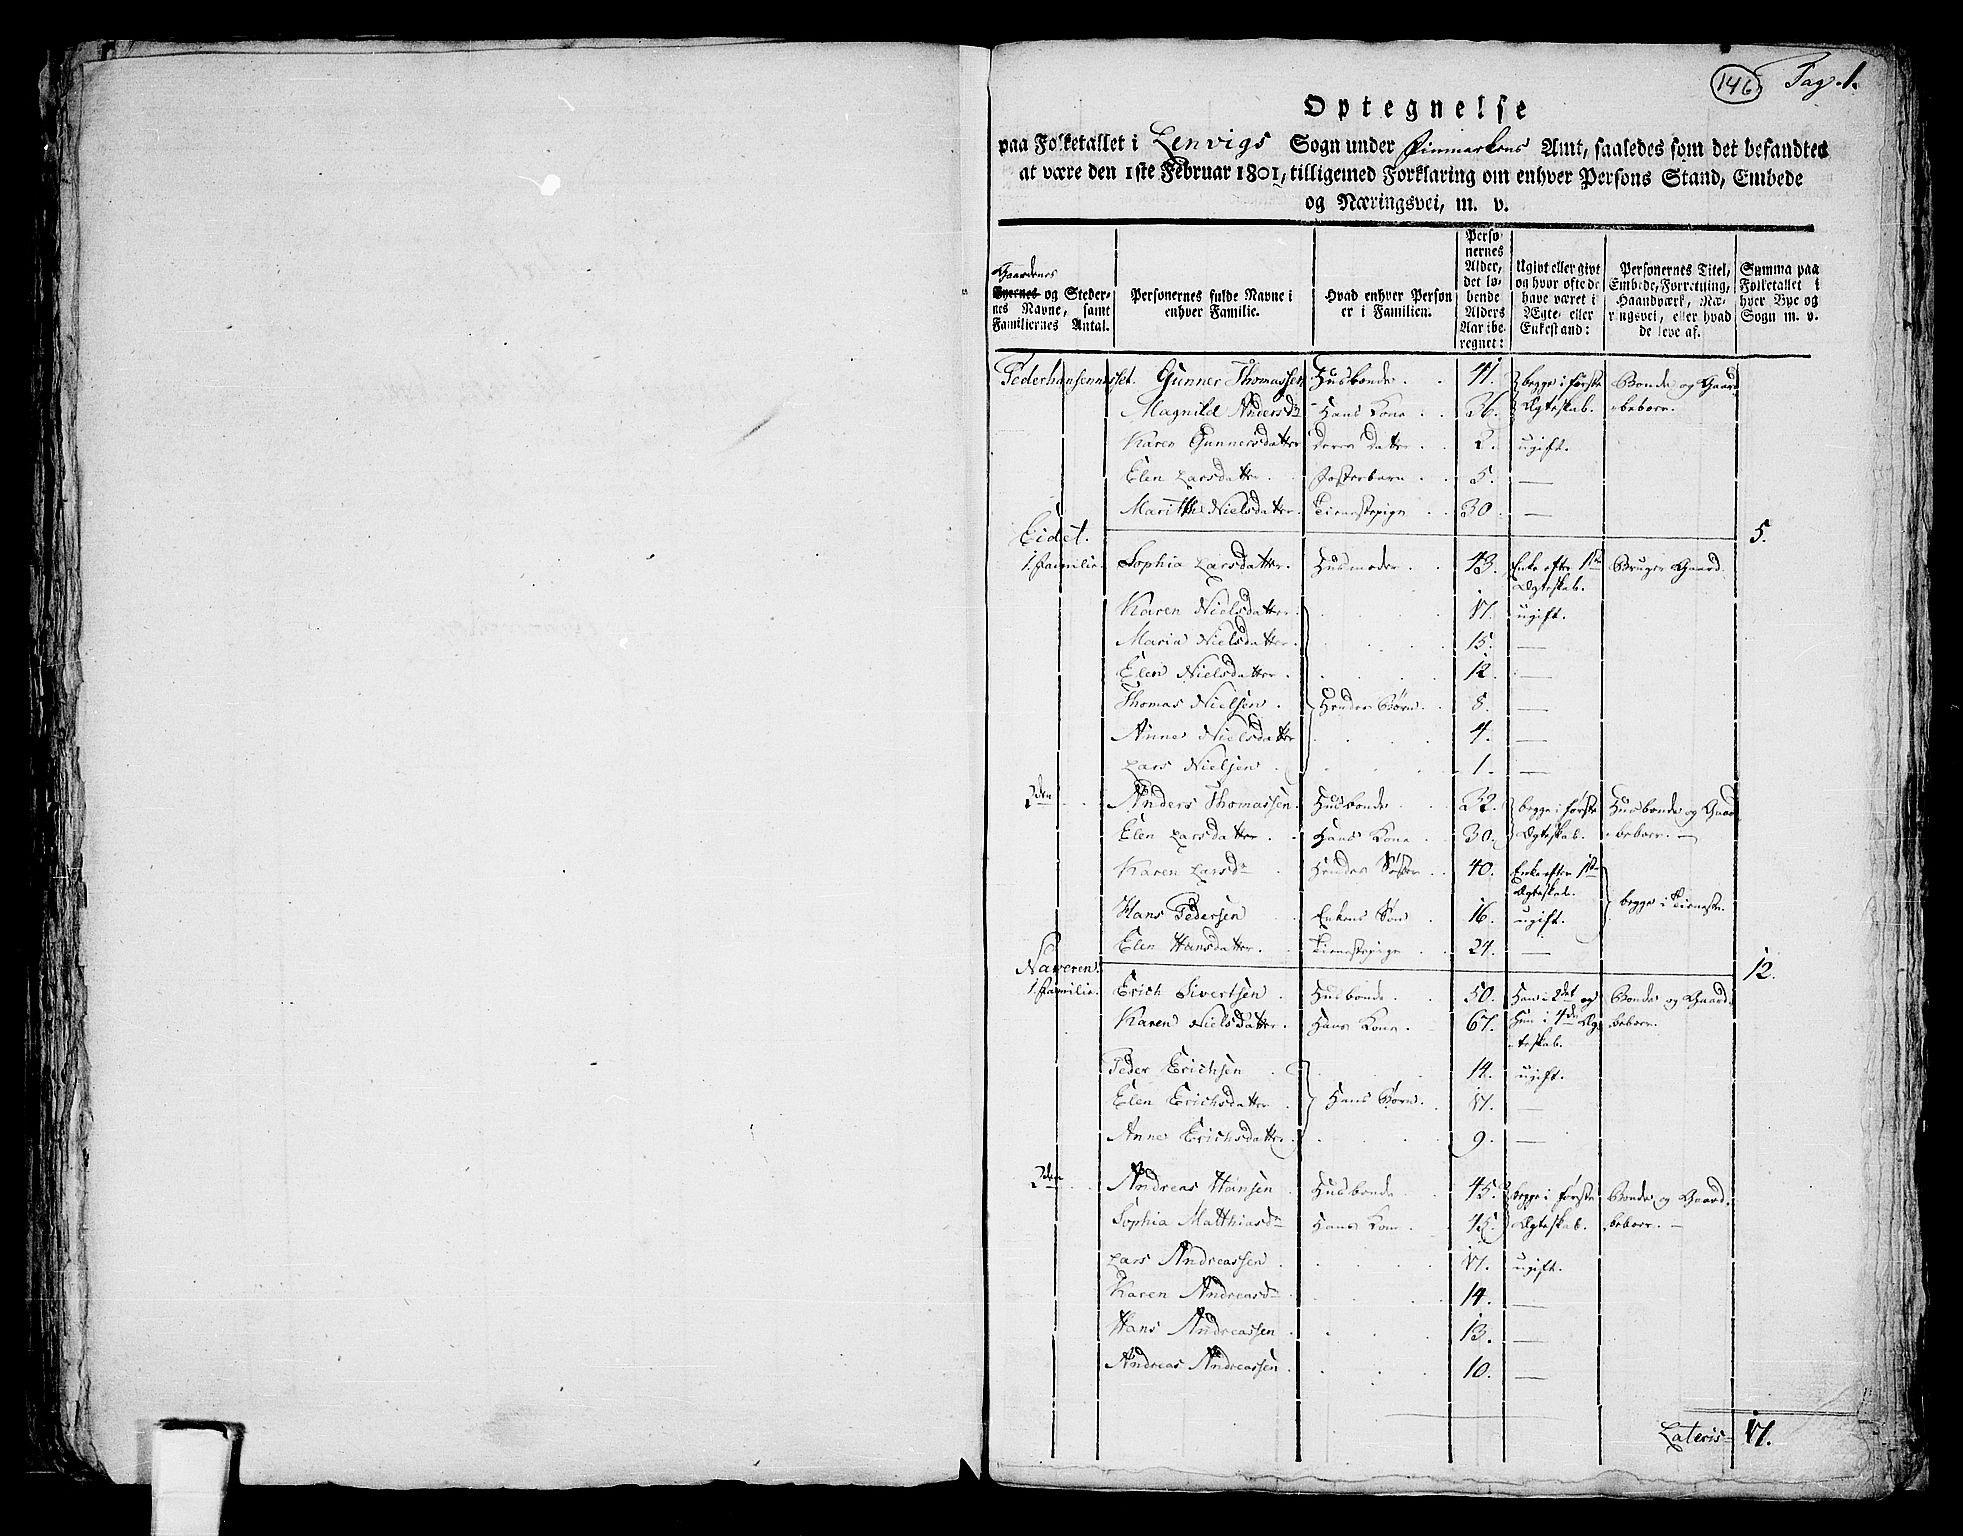 146 Pag. 1.
Optegnelse
paa Folketallet i Lenvigs Sogn under Finmarkens Amt, saaledes som det befandtes
at være den 1ste Februar 1801, tilligemed Forklaring om enhver Persons Stand, Embede
og Næringsvei, m. v.
Gaardenes
Byernes og Steder-
nes Navne, samt
Familiernes Antal.
Personernes fulde Navne i
enhver Familie.
Hvad enhver Person
er i Familien.
Perso-
nernes
Alder,
det lø-
bende
Alders
Aar ibe-
regnet:
Ugivt eller givt
og hvor ofte de
have været i
Ægte- eller
Enkestand:
Personernes Titel,
Embede, Forretning,
Haandværk, Næ-
ringsvei, eller hvad
de leve af.
Summa paa
Folketallet i
hver Bye og
Sogn m. v.
Pederhansenneslet. Gunner Thomassen Husbonde 41. begge i første Bonde og Gaard-
Magnild Andersdr Hans Kone 36. Ægteskab. beboer.
Karen Gunnersdatter Deres Datter 2. ugift.
Elen Larsdatter Fosterbarn 5. —
Marith Nielsdatter Tienestepige 30. —
Eidet. 5.
1. Familie. Sophia Larsdatter. Husmoder 43. Enke efter 1ste Bruger Gaard
Ægteskab.
Karen Nielsdatter 17. ugift.
Maria Nielsdatter 15. —
Elen Nielsdatter 12. —
Thomas Nielsen Hendes Børn 8. —
Anne Nielsdatter 4. —
Lars Nielsen 1. —
2den Anders Thomassen Husbonde 32. begge i første Husbonde og Gaard
Elen Larsdatter Hans Kone 30. Ægteskab. beboer. —
Karen Larsdr Hendes Søster 40. Enke efter 1ste
Ægteskab.
Hans Pedersen Enkens Søn 16. ugift. begge i Tieneste.
Elen Hansdatter Tienestepige 24. —
Naveren. 12.
1. Familie. Erich Sivertsen Husbonde 50. Han i 2det og Bonde og Gaard-
Karen Nielsdatter Hans Kone 67. Hun i 4de Æg- beboer.
teskab.
Peder Erichsen 14. ugift.
Elen Erichsdatter Hans Børn 17. —
Anne Erichsdatter 9. —
2den Andreas Hansen Husbonde 45. begge i første Bonde og Gaard-
Sophia Matthiasdr Hans Kone 45. Ægteskab. beboer. —
Lars Andreassen 17. ugift.
Karen Andreasdr 14. —
Hans Andreassen 13. —
Andreas Andreassen 10. —
Lateris 17.